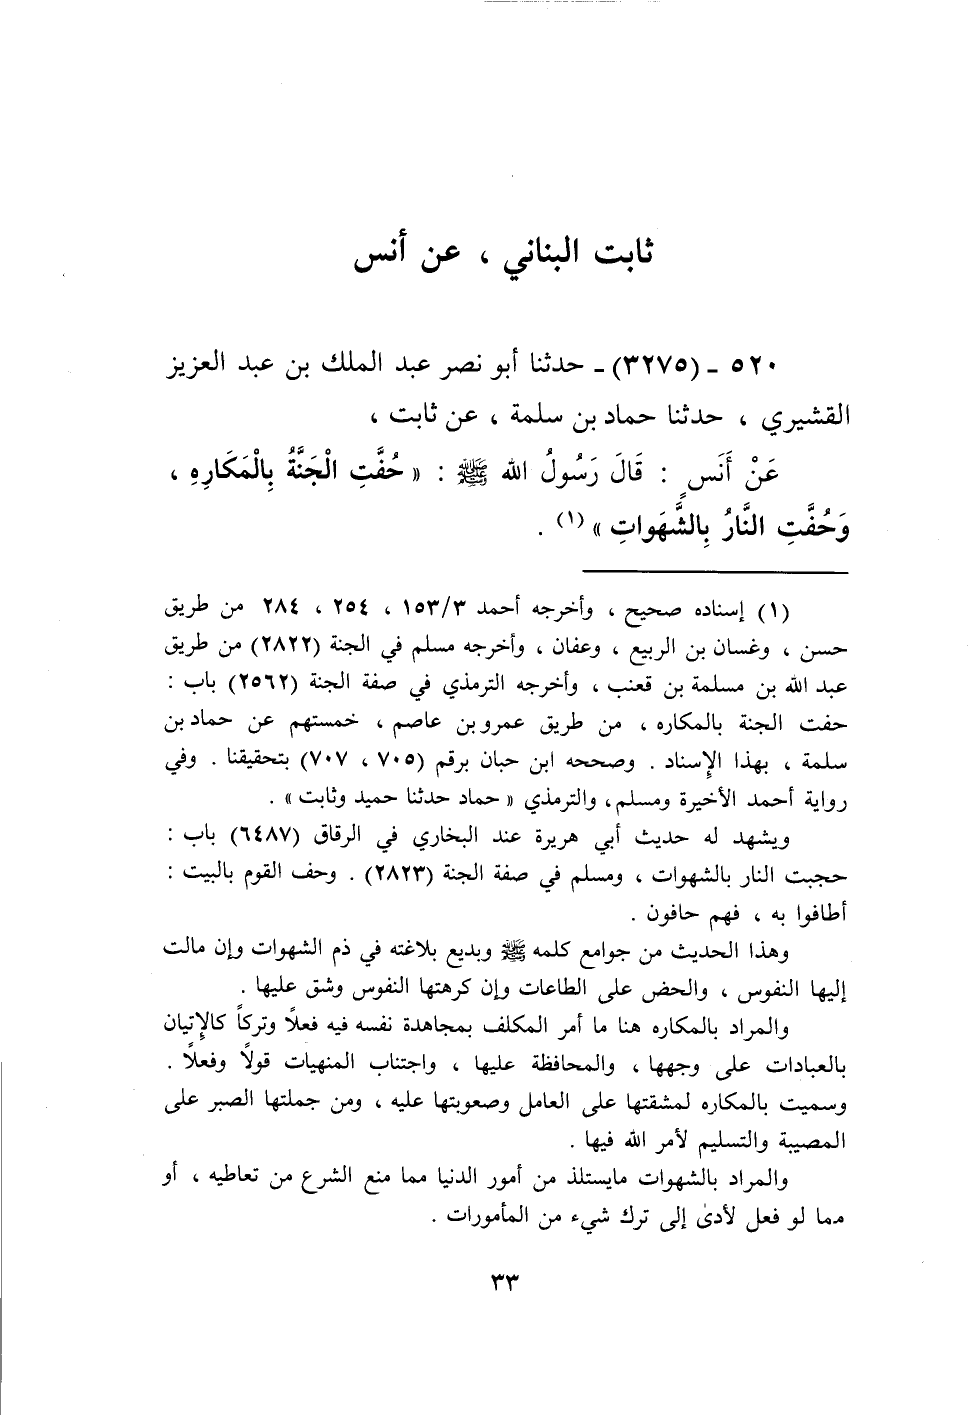 ثابت البناني ، عن أنس
٥٢٠ - (٣٢٧٥) - حدثنا أبو نصر عبد الملك بن عبد العزيز
القشيري ، حدثنا حماد بن سلمة ، عن ثابت ،
عَنْ أَنَسٍ : قَالَ رَسُولُ الله ﷺ : « حُفَّتِ الْجَنَّةُ بِالْمَكَارِهِ ،
وَحُفَّتِ النَّارُ بِالشَّهَواتِ » (١) .
(١) إسناده صحيح ، وأخرجه أحمد ١٥٣/٣ ، ٢٥٤ ، ٢٨٤ من طريق
حسن ، وغسان بن الربيع ، وعفان ، وأخرجه مسلم في الجنة (٢٨٢٢) من طريق
عبد الله بن مسلمة بن قعنب ، وأخرجه الترمذي في صفة الجنة (٢٥٦٢) باب :
حفت الجنة بالمكاره ، من طريق عمرو بن عاصم ، خمستهم عن حماد بن
سلمة ، بهذا الإسناد . وصححه ابن حبان برقم (٧٠٥ ، ٧٠٧) بتحقيقنا . وفي
رواية أحمد الأخيرة ومسلم، والترمذي « حماد حدثنا حميد وثابت » .
ويشهد له حديث أبي هريرة عند البخاري في الرقاق (٦٤٨٧) باب :
حجبت النار بالشهوات ، ومسلم في صفة الجنة (٢٨٢٣) . وحف القوم بالبيت :
أطافوا به ، فهم حافون .
وهذا الحديث من جوامع كلمه ﷺ وبديع بلاغته في ذم الشهوات وإن مالت
إليها النفوس ، والحض على الطاعات وإن كرهتها النفوس وشق عليها .
والمراد بالمكاره هنا ما أمر المكلف بمجاهدة نفسه فيه فعلًا وتركاً كالإتيان
بالعبادات على وجهها ، والمحافظة عليها ، واجتناب المنهيات قولًا وفعلًا .
وسميت بالمكاره لمشقتها على العامل وصعوبتها عليه ، ومن جملتها الصبر على
المصيبة والتسليم لأمر الله فيها .
والمراد بالشهوات مايستلذ من أمور الدنيا مما منع الشرع من تعاطيه ، أو
مما لو فعل لأدىٰ إلى ترك شيء من المأمورات .
٣٣